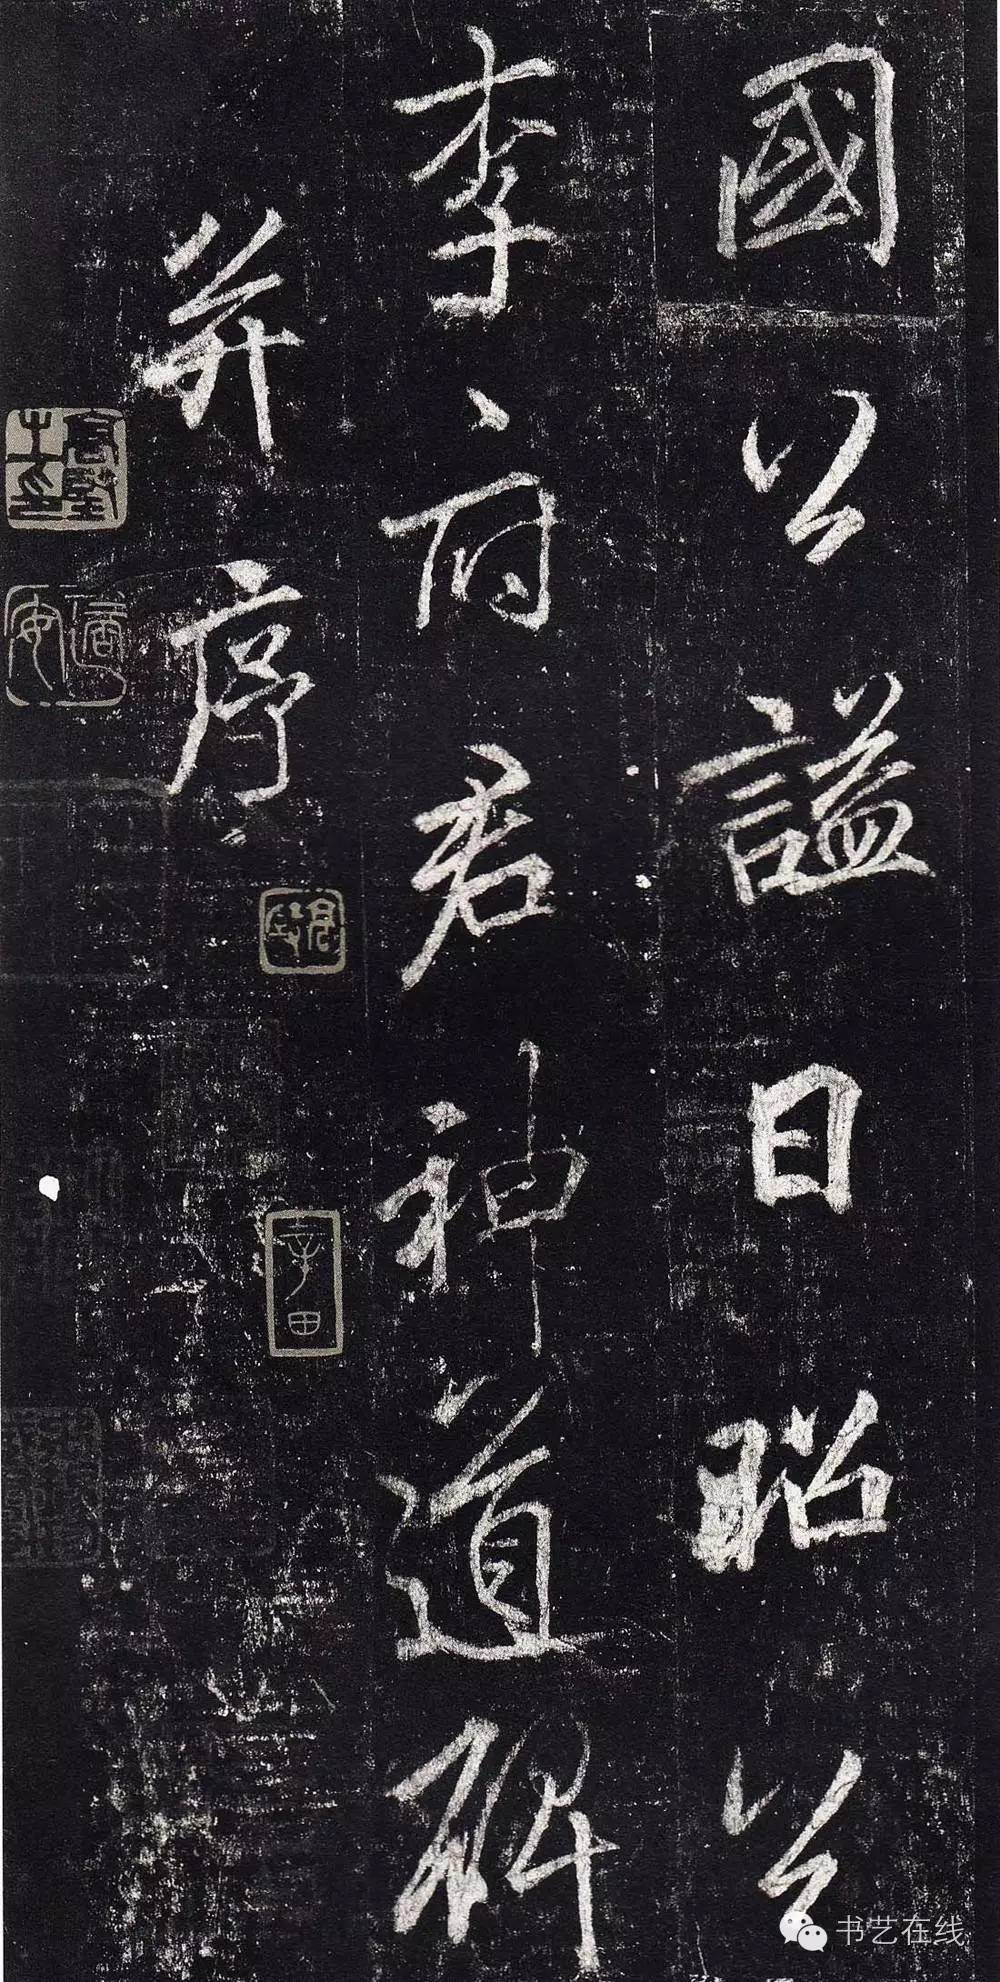 國公謚曰昭公
李府君神道碑
并序
书艺在线